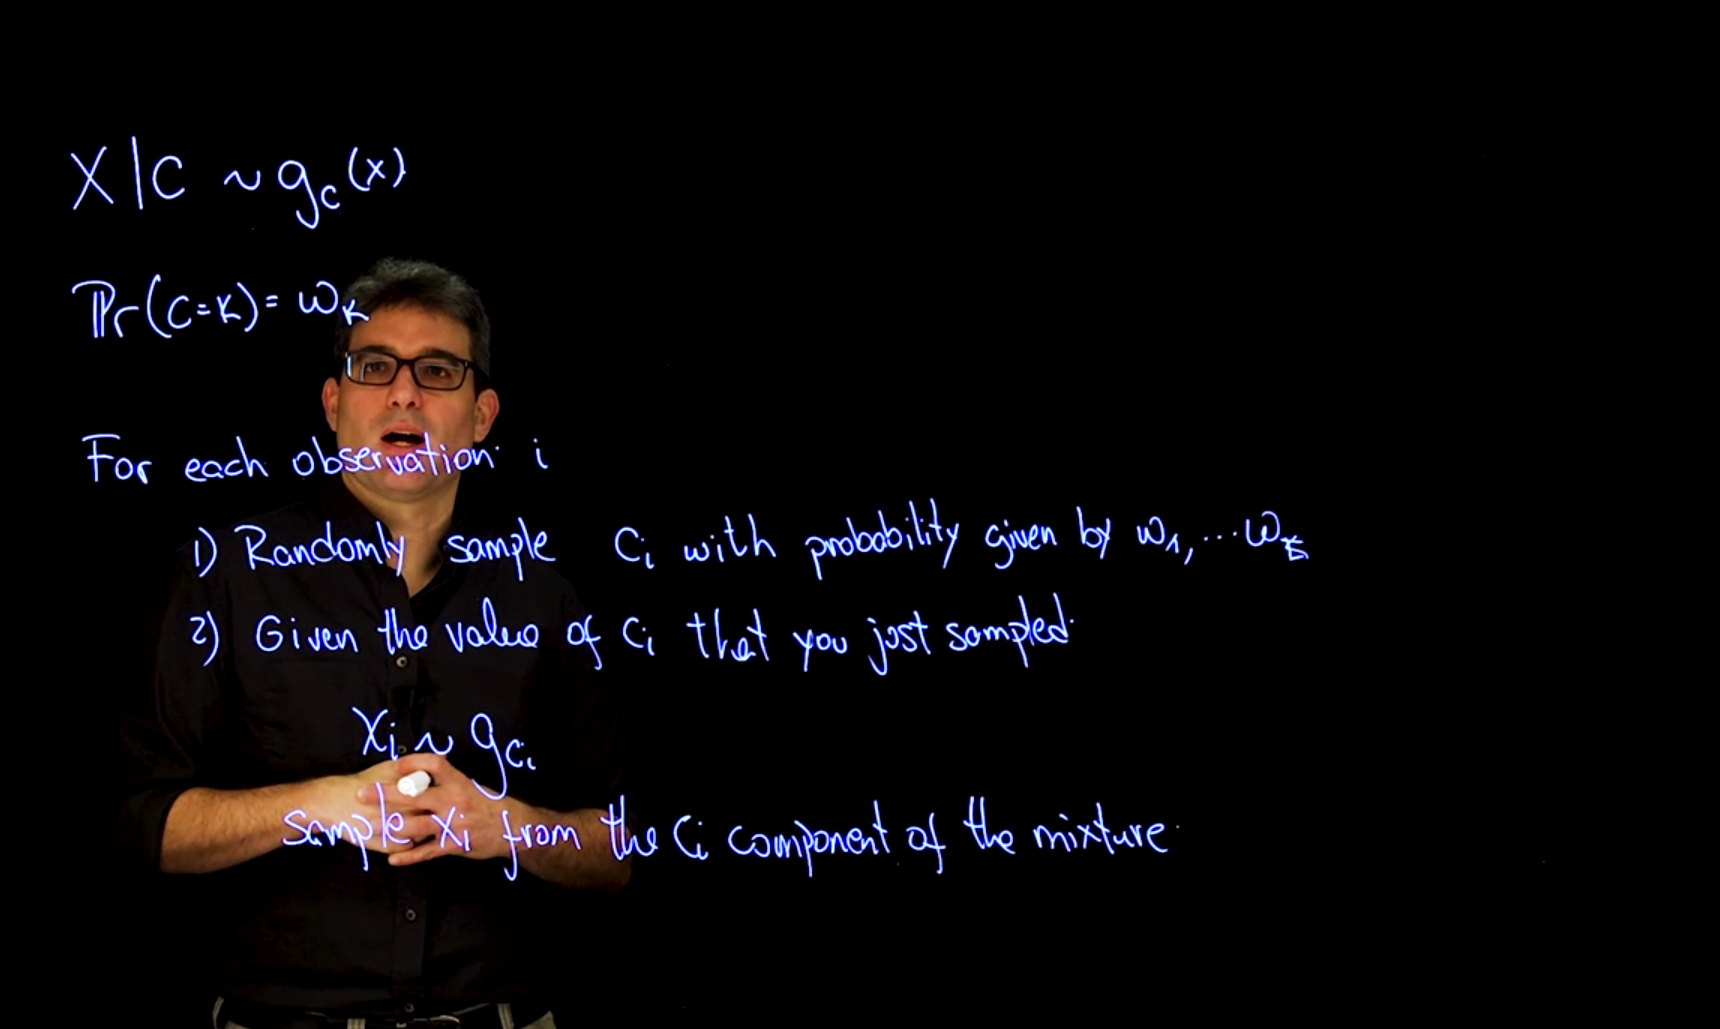 X|C ~ g_c(x)
Pr(C=K)= ω_K
For each observation i
1) Randomly sample C_i with probability given by ω_1, ... ω_K
2) Given the value of C_i that you just sampled
X_i ~ g_{C_i}
sample X_i from the C_i component of the mixture